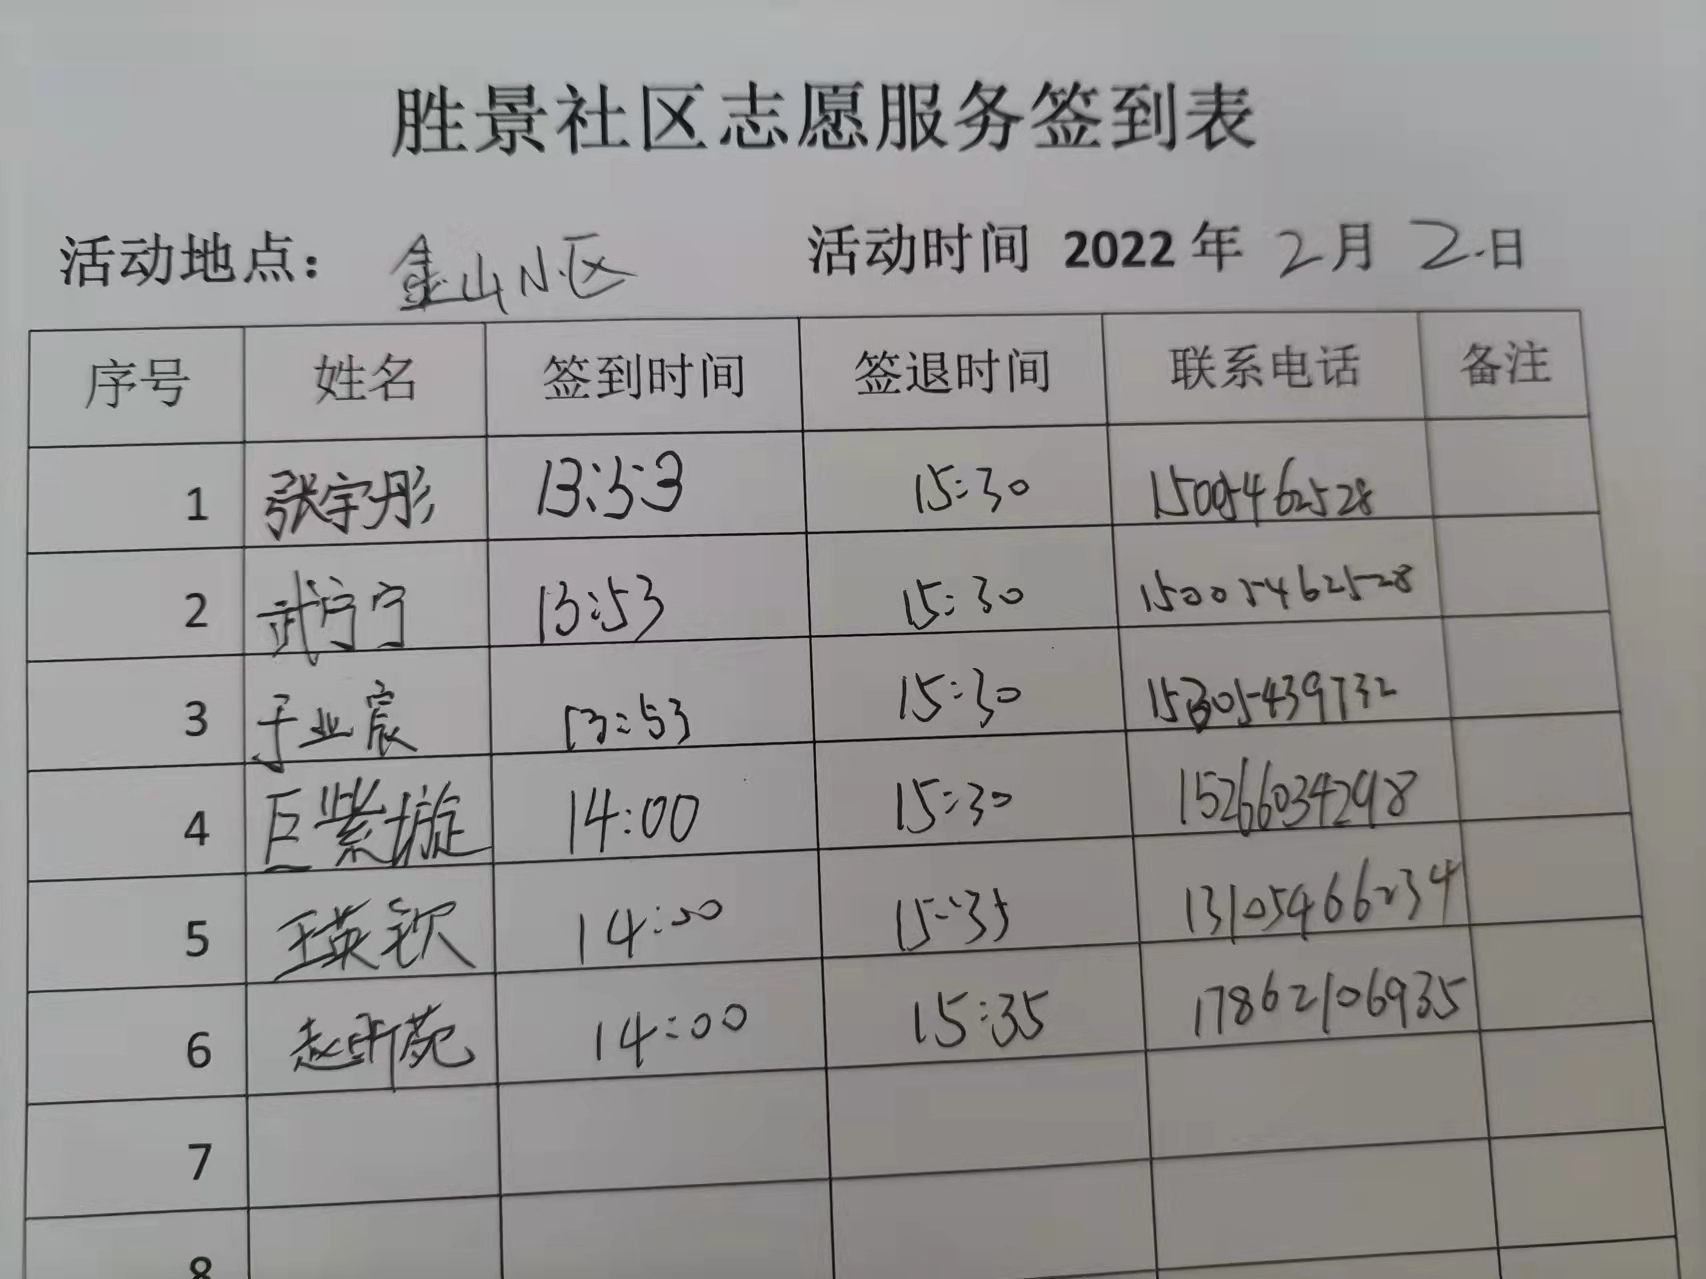 胜景社区志愿服务签到表
活动地点： 金山小区 活动时间 2022年 2月 2日
序号 姓名 签到时间 签退时间 联系电话 备注
1 张宇彤 13:53 15:30 15005462528
2 武宁宁 13:53 15:30 15005462528
3 于业宸 13:53 15:30 15305439732
4 巨紫璇 14:00 15:30 15266034298
5 王英钦 14:00 15:35 13105466234
6 赵昕苑 14:00 15:35 17862106935
7
8